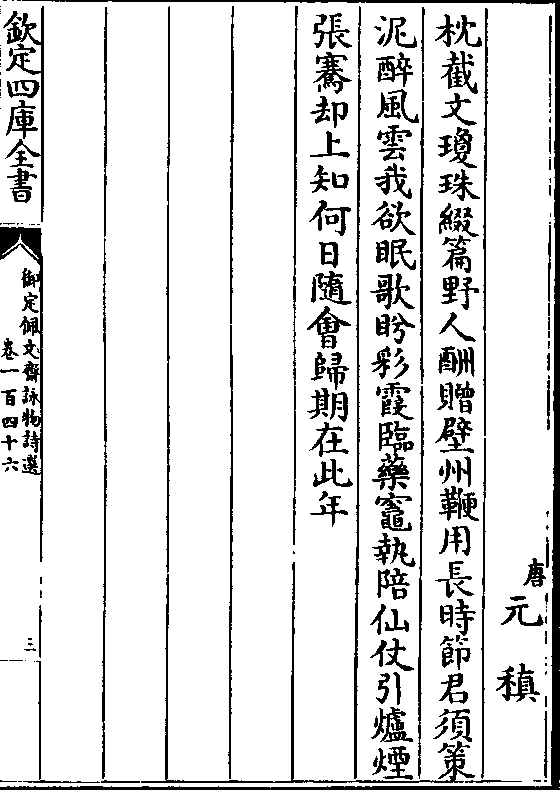 唐元稹
枕截文瓊珠綴篇野人酬贈壁州鞭用長時節君須策
泥醉風雲我欲眠歌盻彩霞臨藥竈執陪仙仗引爐煙
張騫却上知何日隨會歸期在此年
欽定四庫全書
御定佩文齋詠物詩選
卷一百四十六
三